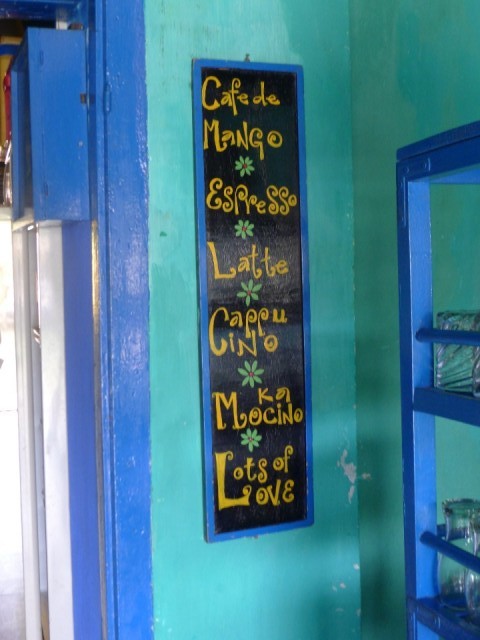 Cafe de
MANGO
ESPresso
Latte
Cappu
CINO
Ka
MOCINO
Lots of
LOVE